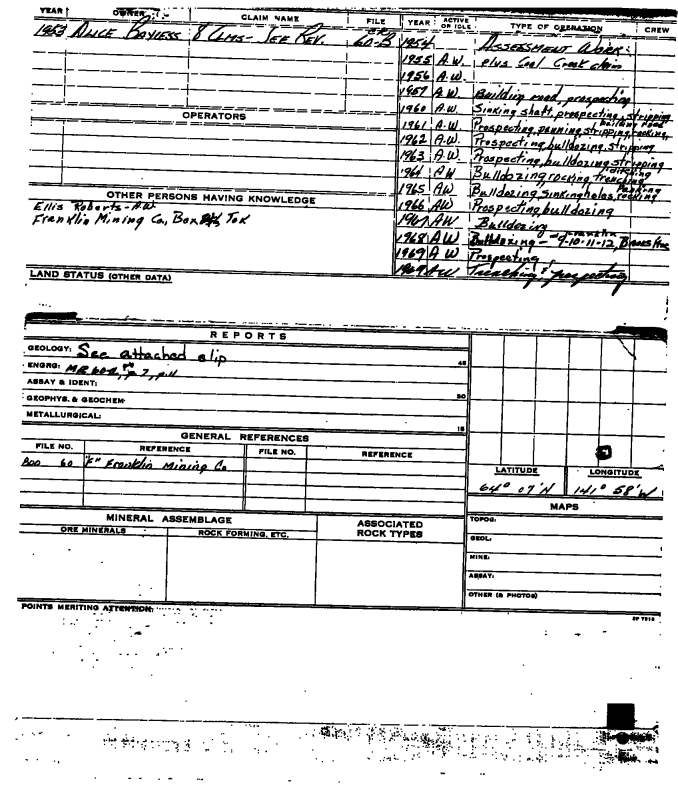 YEAR OWNER CLAIM NAME FILE YEAR ACTIVE OR IDLE TYPE OF OPERATION CREW
1953 Alice Boyiess 8 Clms - See Rev. 60-B 1954 Assessment Work:
1955 A.W. plus Coal Creek claim
1956 A.W.
1957 A.W. Building road, prospecting
1960 A.W. Sinking shaft, prospecting, stripping
building road,
1961 A.W. Prospecting, panning, stripping, rocking,
1962 A.W. Prospecting, bulldozing, stripping
1963 A.W. Prospecting, bulldozing, stripping
ditching
1964 Bulldozing, rocking, trenching
1965 AW Bulldozing, sinking holes, rocking
1966 AW Prospecting, bulldozing
1967 AW Bulldozing
1968 AW Bulldozing - 9-10-11-12,
1969 AW Prospecting
1969 AW Trenching & prospecting
OPERATORS
OTHER PERSONS HAVING KNOWLEDGE
Ellis Roberts - A.W.
Franklin Mining Co, Box Tok
LAND STATUS (OTHER DATA)
REPORTS
GEOLOGY: See attached slip 45
ENGRG: MR p 7, p. 11
ASSAY & IDENT:
GEOPHYS. & GEOCHEM. 30
METALLURGICAL: 15
GENERAL REFERENCES
FILE NO. REFERENCE FILE NO. REFERENCE
ADD 60 "F" Franklin Mining Co
LATITUDE LONGITUDE
64° 07' N 141° 58' W
MAPS
MINERAL ASSEMBLAGE ASSOCIATED ROCK TYPES
ORE MINERALS ROCK FORMING, ETC.
TOPOG:
GEOL:
MINE:
ASSAY:
OTHER (& PHOTOS)
POINTS MERITING ATTENTION: